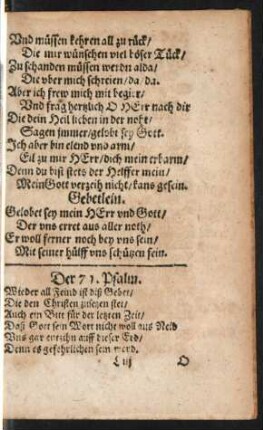 Vnd müssen kehren all zu rück/
Die mir wünschen viel böser Tück/
Zu schanden müssen werdn alda/
Die vber mich schreien/da/da.
Aber ich frew mich mit begier/
Vnd frag hertzlich O HErr nach dir
Die dein Heil lieben in der noht/
Sagen jmmer/gelobt sey Gott.
Ich aber bin elend vnd arm/
Eil zu mir HErr/dich mein erbarm/
Denn du bist stets der Helffer mein/
Mein Gott verzeih nicht/kans gesein.
Gebetlein.
Gelobet sey mein HErr vnd Gott/
Der vns erret aus aller noth/
Er woll ferner noch bey vns sein/
Mit seiner hülff vns schützen fein.
Der 71. Psalm.
Wieder all Feind ist diß Gebet/
Die den Christen zusetzen stet/
Auch ein Bitt für der letzten Zeit/
Daß Gott sein Wort nicht woll aus Neid
Vns gar auff dieser Erd/
Denn es gefehrlichen sein werd.
L iij O